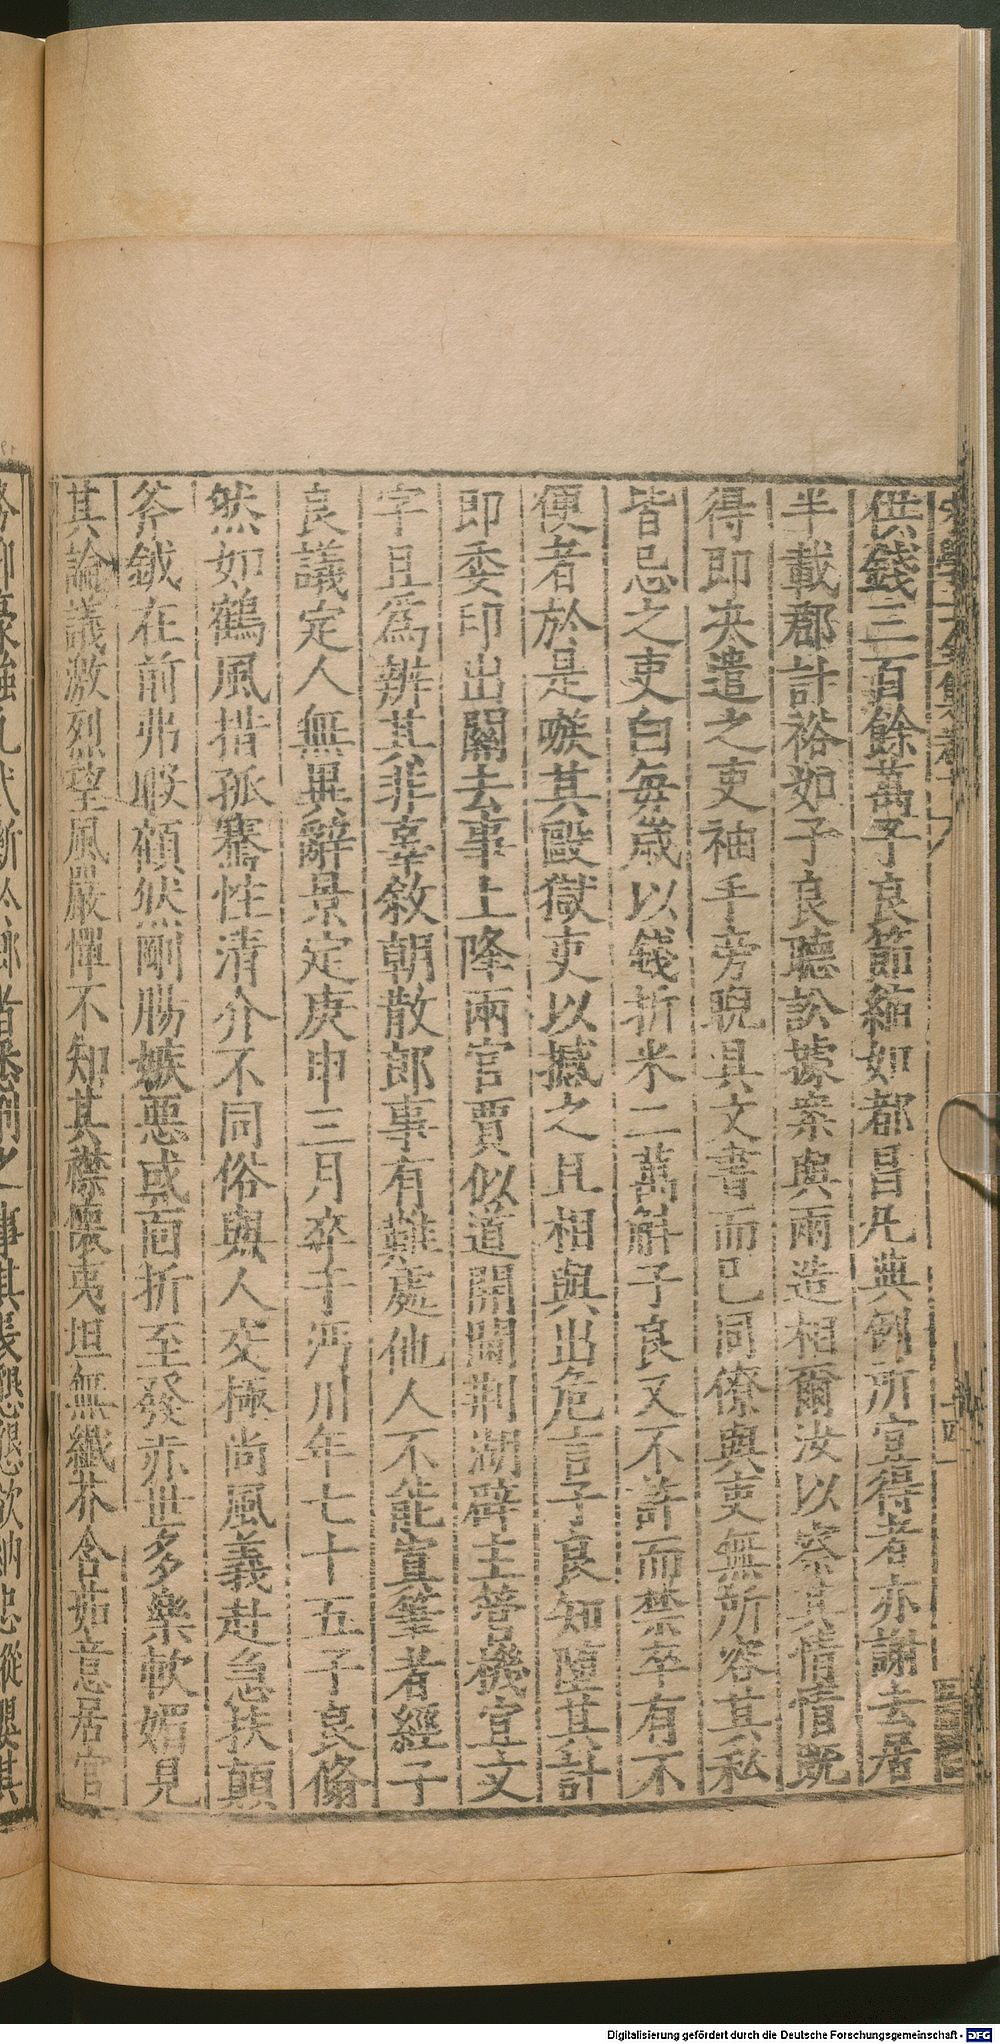 供錢三百餘萬子良節縮如都昌凡無例所宜得者亦謝去居
半載郡計裕如子良聽訟據案與兩造相爾汝以察其情情既
得即夾遣之吏袖手旁睨具文書而已同僚與吏無所容其私
皆忌之吏白每歲以錢折米二萬斛子良又不許而禁卒有不
便者於是嗾其毆獄吏以撼之且相與出危言子良知墮其計
即委印出關去事上降兩官賈似道開閫荆湖辟主管機宜文
字且爲辨其非辜敘朝散郎事有難處他人不能寘筆者經子
良議定人無異辭景定庚申三月卒于沔川年七十五子良翛
然如鶴風措孤騫性清介不同俗與人交極尚風義赴急扶顛
斧鉞在前弗睱頋然剛膓嫉惡或面折至發赤世多樂軟媚見
其論議激烈望風嚴憚不知其襟懷夷坦無纖芥含茹意居官
Digitalisierung gefördert durch die Deutsche Forschungsgemeinschaft - DFG